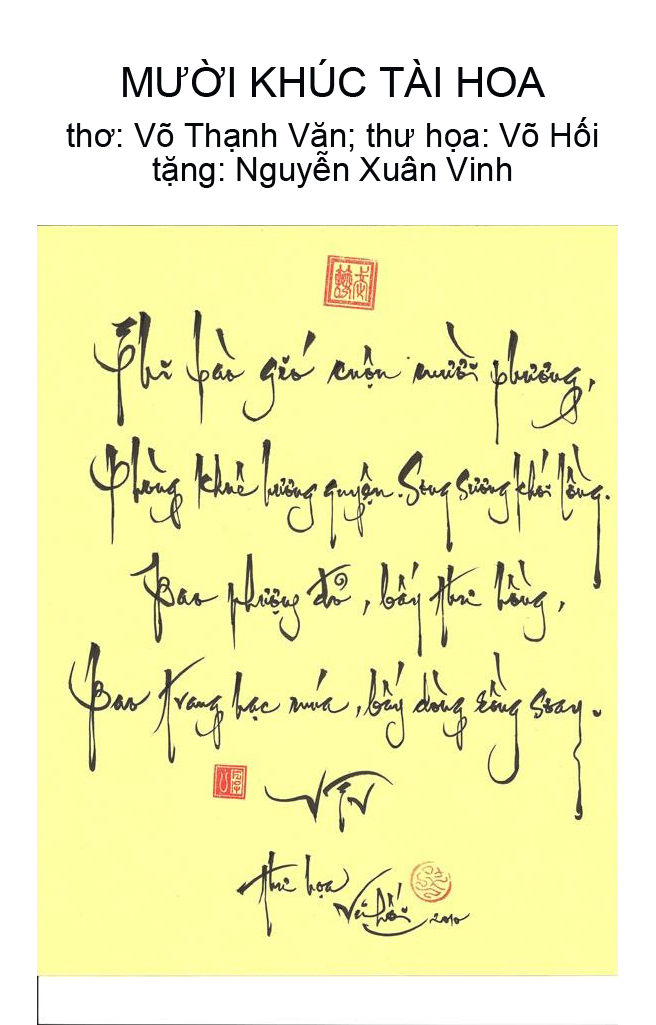 MƯỜI KHÚC TÀI HOA
thơ: Võ Thạnh Văn; thư họa: Võ Hối
tặng: Nguyễn Xuân Vinh
Phi bào gió cuộn mười phương,
Phòng khuê hương quyện. Song sương khói lồng.
Bao phượng đỏ, bấy thư hồng,
Bao trang hạc múa, bấy dòng rồng
VTV
thư họa
Vũ Hối 2010